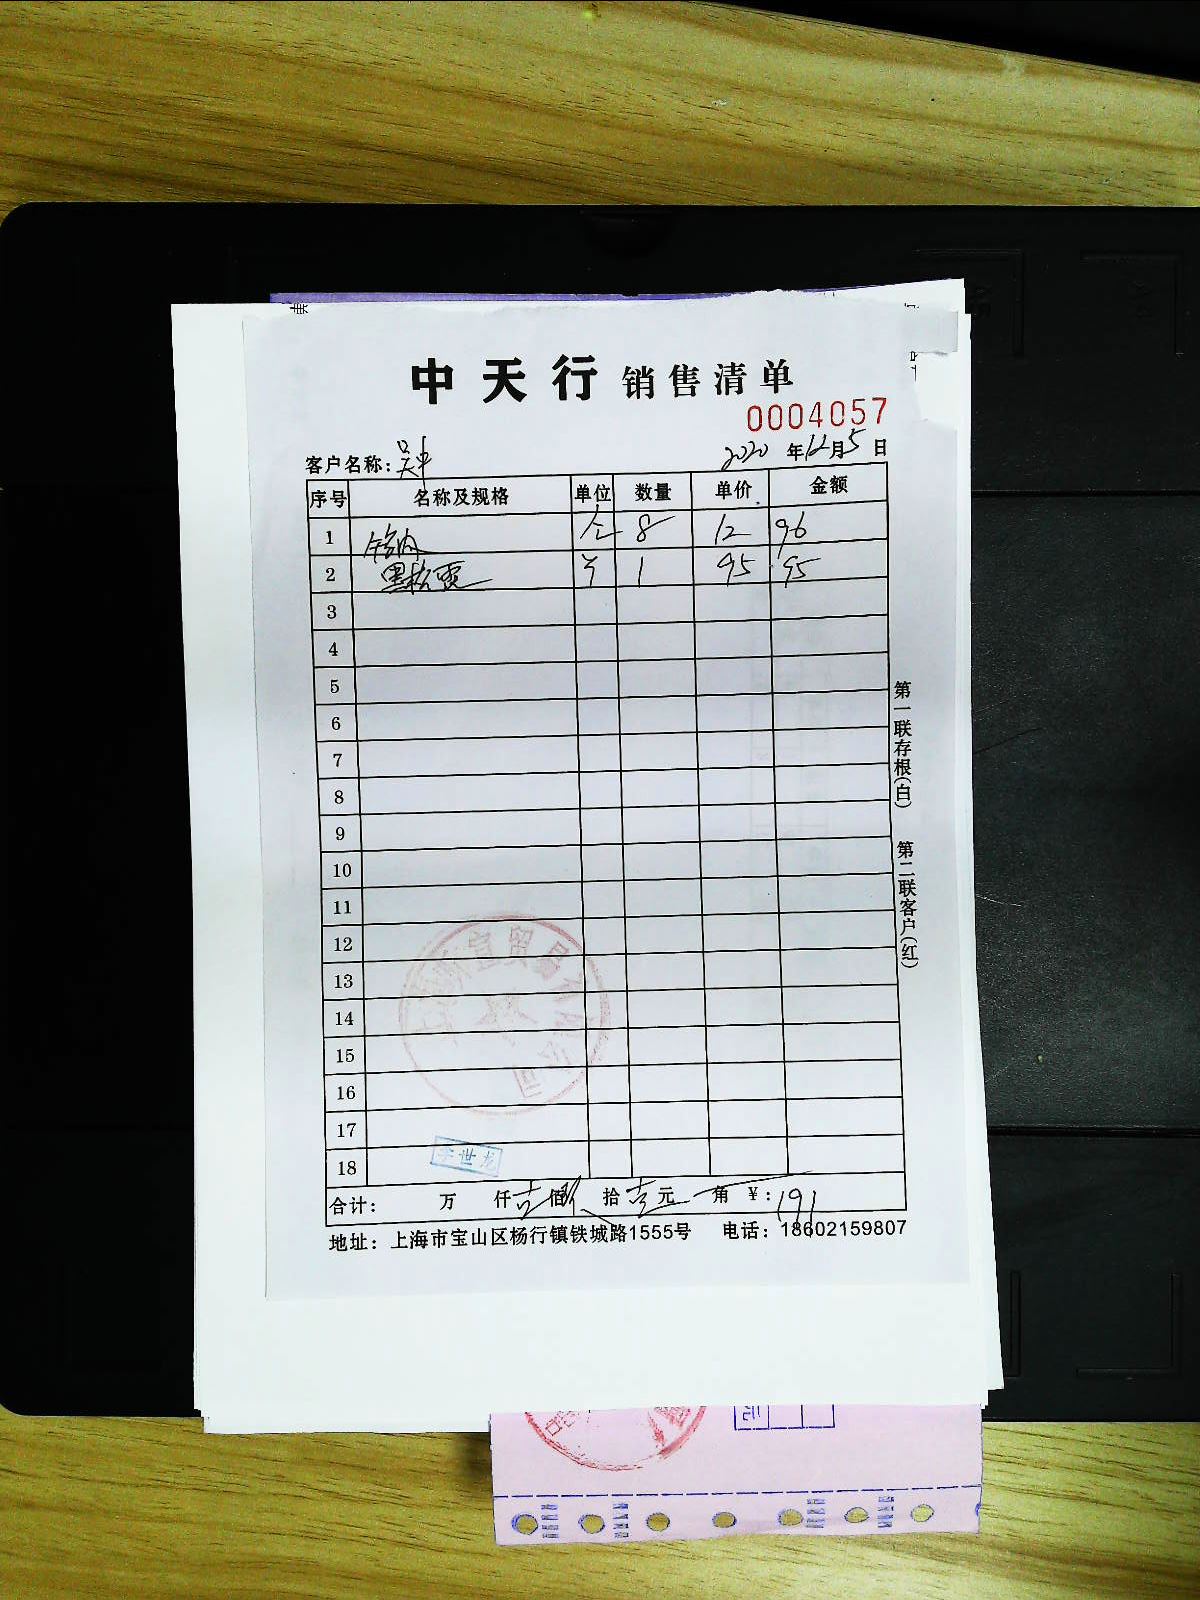 中天行 销售清单
0004057
客户名称: 吴中 2020 年 12 月 5 日
序号 名称及规格 单位 数量 单价 金额
1 8 12 96
2 1 95 95
3
4
5
6
7
8
9
10
11
12
13
14
15
16
17
18
李世龙
合计: 万 仟 壹 佰 玖 拾 壹 元 角 ¥: 191
地址: 上海市宝山区杨行镇铁城路1555号 电话: 18602159807
第一联存根(白) 第二联客户(红)